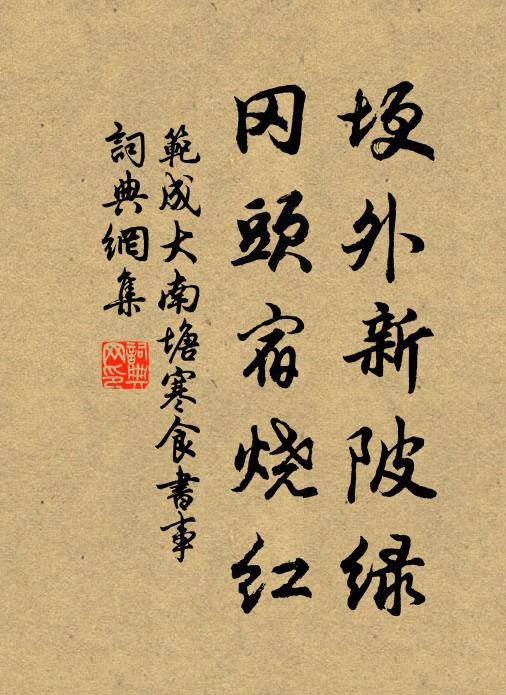 埂外新陂绿
冈头宿烧红
範成大南塘寒食書事
詞典網集
詞典网印